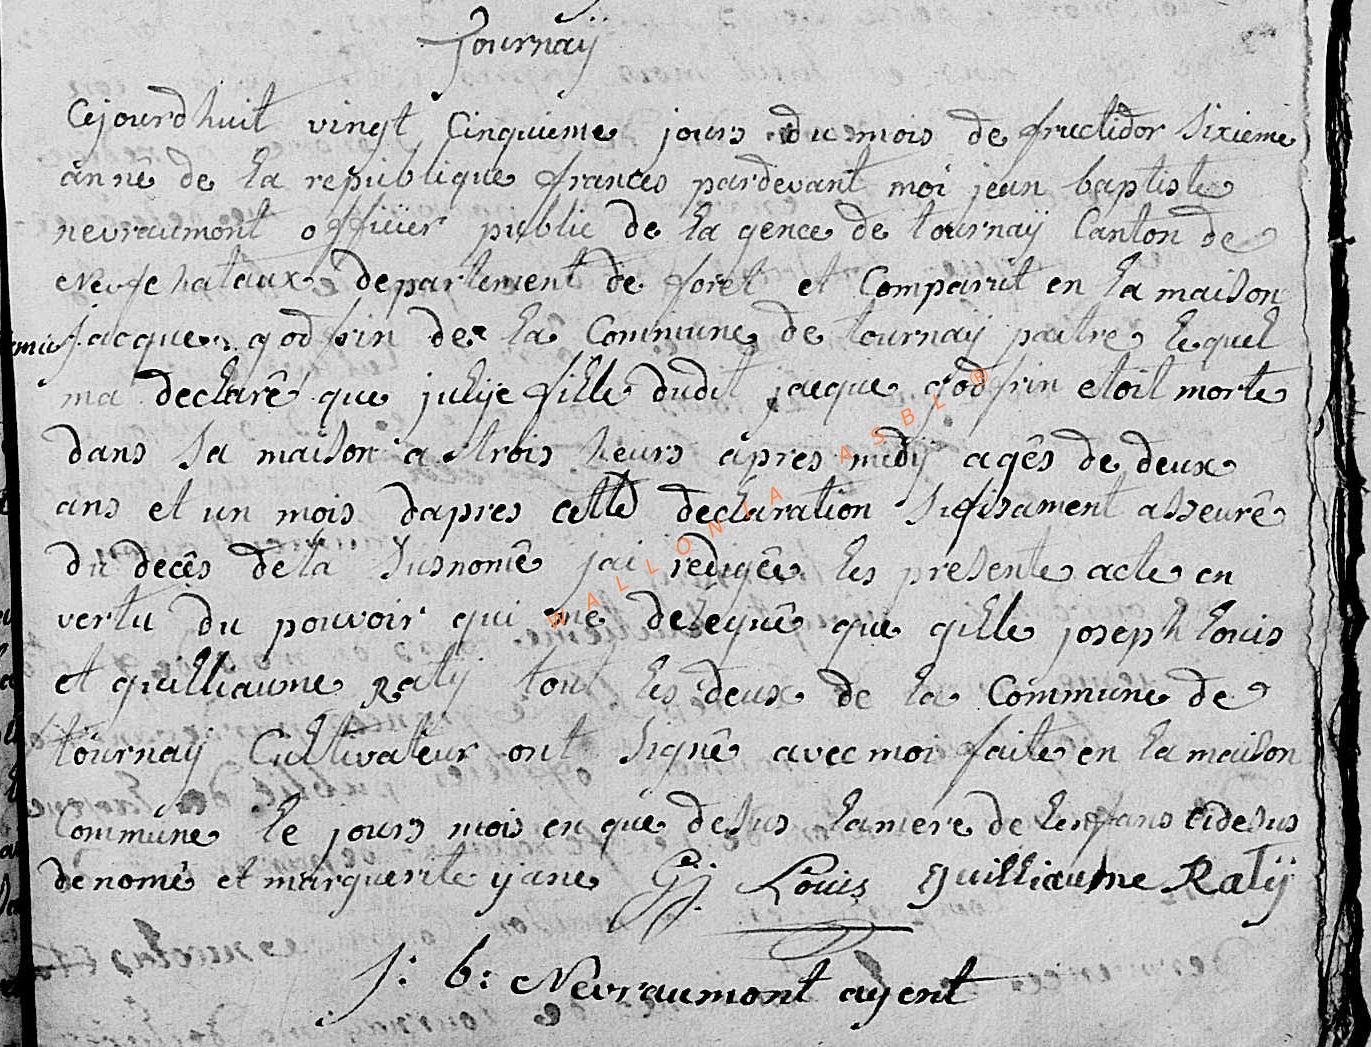 Tournaÿ
Cejourdhuit vingt Cinquieme jours du mois de fructidor Sixieme
anné de la republique frances pardevant moi jean baptiste
nevraumont officier public de la gence de tournaÿ Canton de
Neufchataux departement de foret et Comparut en la maison
jacque godfrin de la Commune de tournaÿ paitre lequel
ma declaré que julije fille dudit jacque godfrin etoit morte
dans sa maison a trois heurs apres midÿ agês de deux
ans et un mois dapres cette declaration sufisament asseurê
du decês dela susnomê jai redigêe les presente acte en
vertu du pouvoir qui me deleguê que gille joseph louis
et guilliaume Ratÿ tout les deux de la Commune de
tournaÿ Cultivateur ont signê avec moi faite en la maison
Commune le jours mois en que desus lamere de lenfans cidesus
denomê et marguerite yane GJ. Louis guilliaume Ratÿ
J: b: Nevraumont agent
WALLONIA ASBL ®